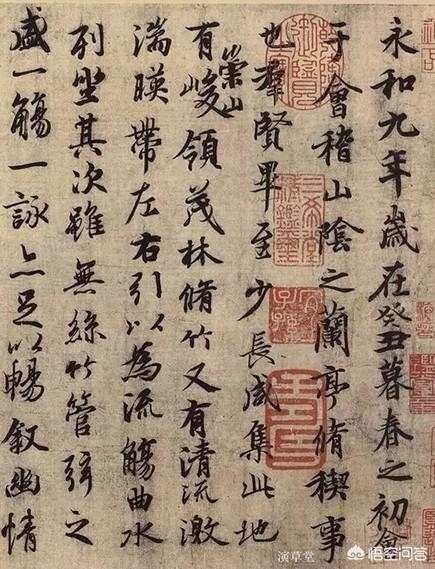 永和九年歲在癸丑暮春之初會
于會稽山陰之蘭亭脩稧事
也羣賢畢至少長咸集此地
有崇山峻領茂林脩竹又有清流激
湍暎帶左右引以為流觴曲水
列坐其次雖無絲竹管弦之
盛一觴一詠亦足以暢叙幽情
演草堂
悟空问答